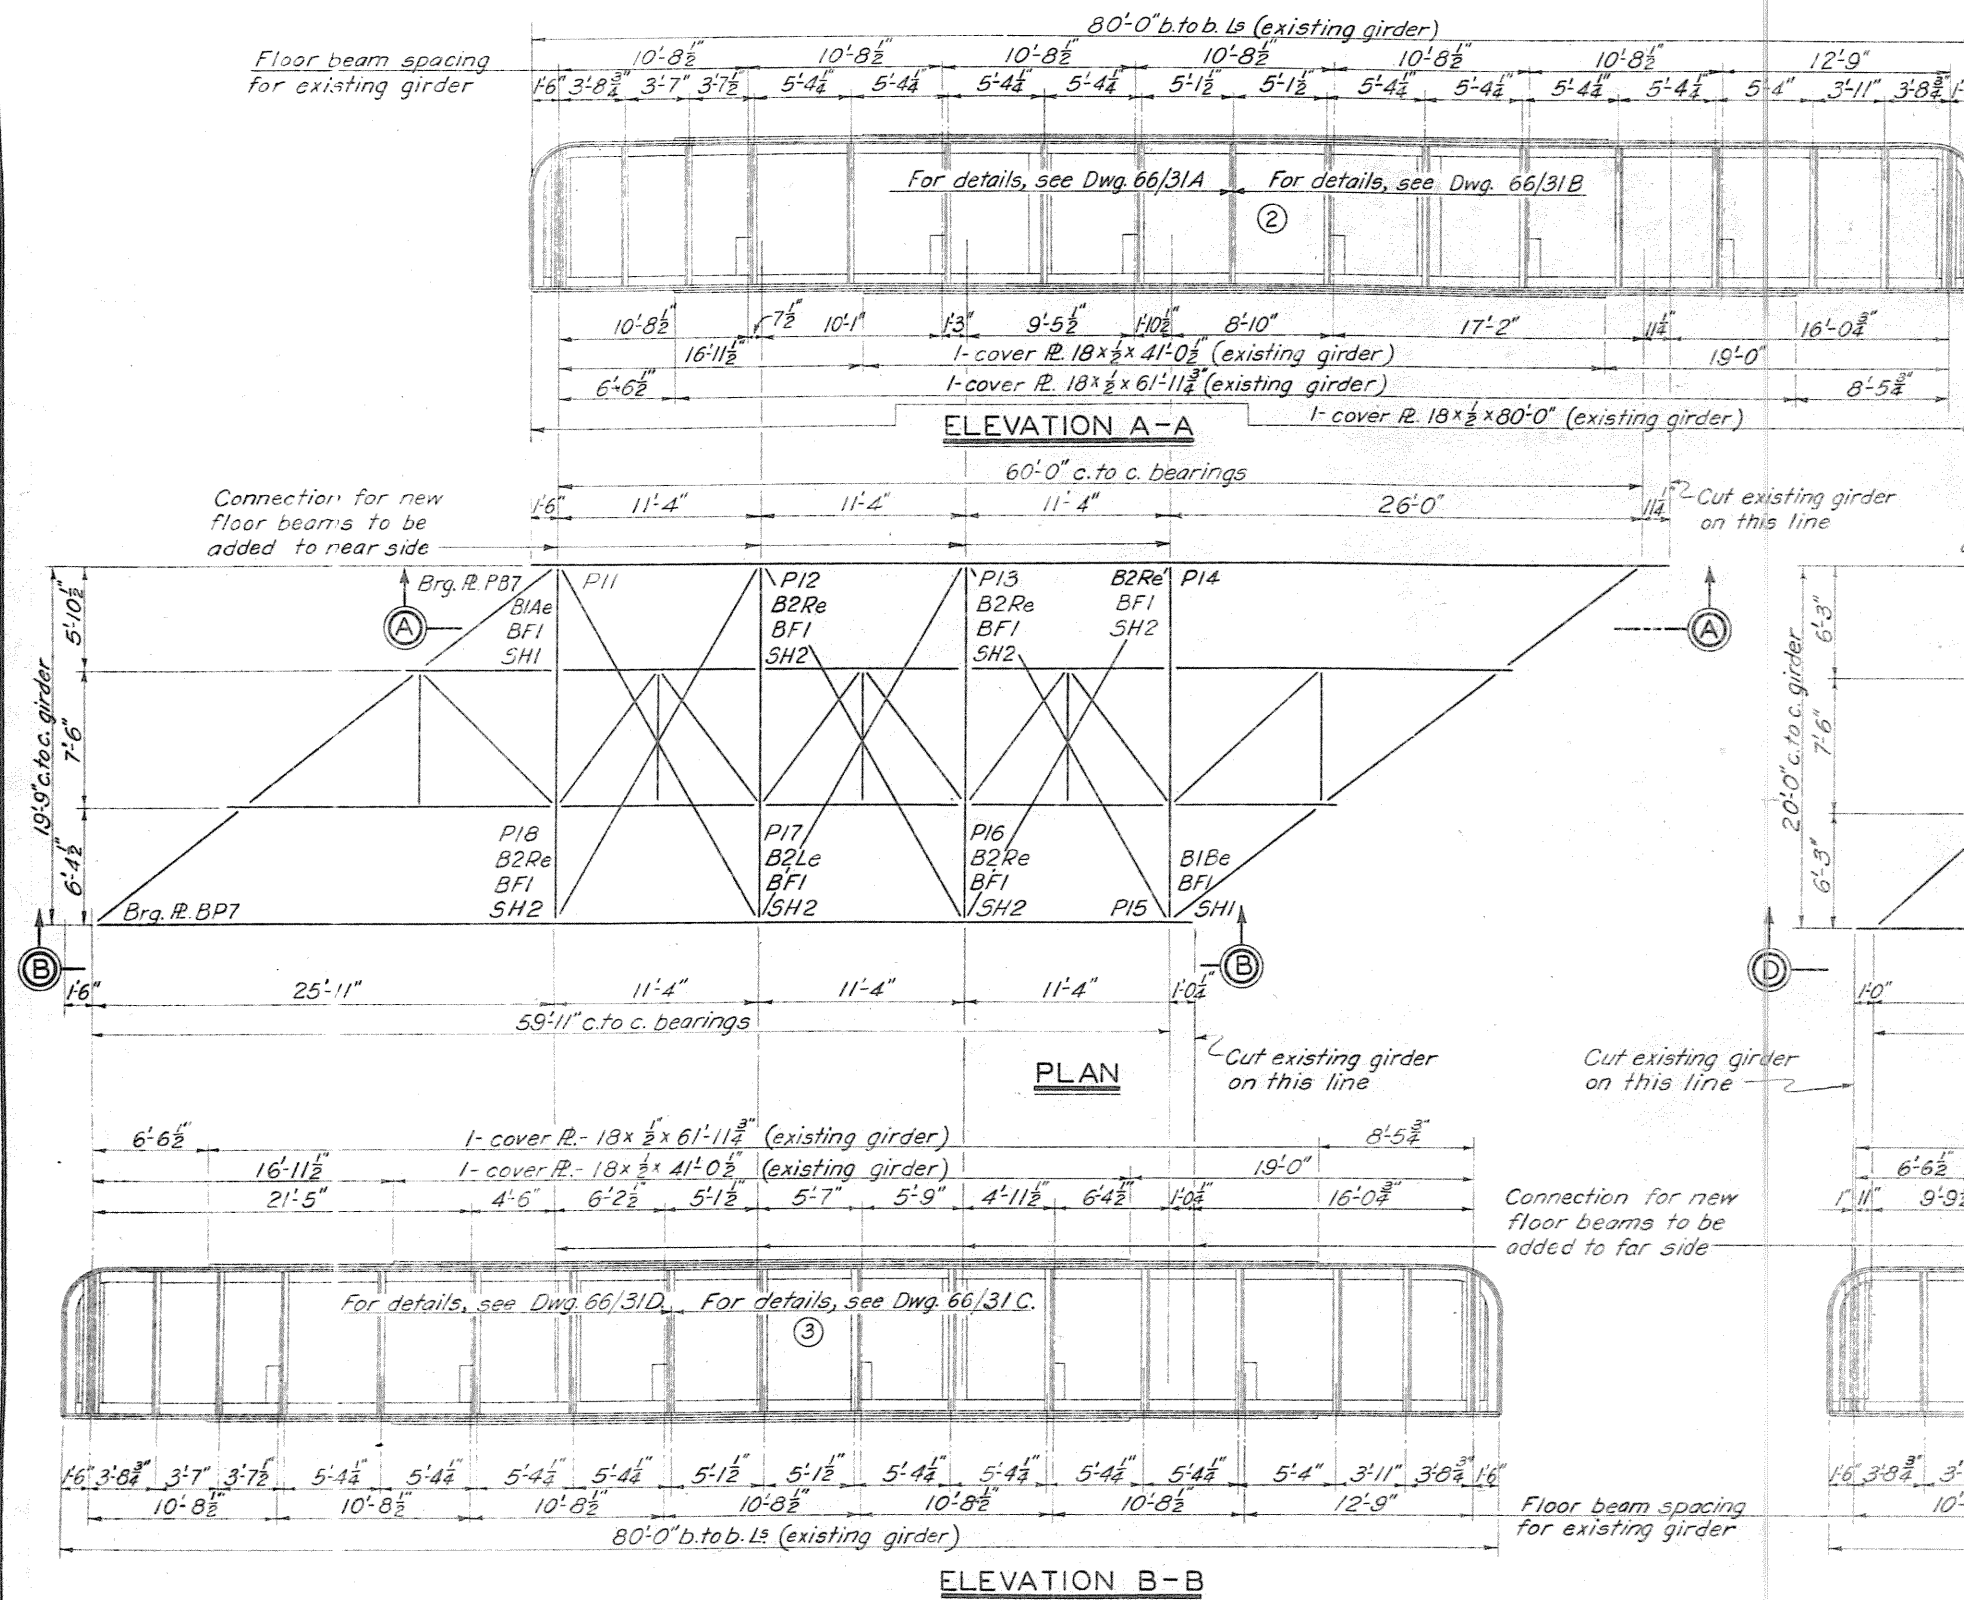 80'-0" b. to b. Ls (existing girder)
Floor beam spacing
for existing girder
10'-8½" 10'-8½" 10'-8½" 10'-8½" 10'-8½" 10'-8½" 12'-9"
1'-6" 3'-8¾" 3'-7" 3'-7½" 5'-4¼" 5'-4¼" 5'-4¼" 5'-4¼" 5'-1½" 5'-1½" 5'-4¼" 5'-4¼" 5'-4¼" 5'-4¼" 5'-4" 3'-11" 3'-8¾" 1'-
For details, see Dwg. 66/31A For details, see Dwg. 66/31B
2
10'-8½" 7½" 10'-1" 1'-3" 9'-5½" 1'-10½" 8'-10" 17'-2" 11¼" 16'-0¾"
16'-11½" 1- cover PL. 18 x ½ x 41'-0½" (existing girder) 19'-0"
6'-6½" 1- cover PL. 18 x ½ x 61'-11¾" (existing girder) 8'-5¾"
1- cover PL. 18 x ½ x 80'-0" (existing girder)
ELEVATION A-A
60'-0" c. to c. bearings
Connection for new
floor beams to be
added to near side
1'-6" 11'-4" 11'-4" 11'-4" 26'-0" 11¼"
Cut existing girder
on this line
Brg. PL. PB7 P11 P12 P13 B2Re P14
B1Ae B2Re B2Re BF1
BF1 BF1 BF1 SH2
SH1 SH2 SH2
A A
19'-9" c. to c. girder
5'-10½"
7'-6"
6'-4½"
20'-0" c. to c. girder
6'-3"
7'-6"
6'-3"
P18 P17 P16
B2Re B2Le B2Re B1Be
BF1 BF1 BF1 BF1
SH2 SH2 SH2 P15 SH1
Brg. PL. BP7
B B D
1'-6" 25'-11" 11'-4" 11'-4" 11'-4" 1'-0¼" 1'-0"
59'-11" c. to c. bearings
Cut existing girder
on this line
Cut existing girder
on this line
PLAN
6'-6½" 1- cover PL. - 18 x ½ x 61'-11¾" (existing girder) 8'-5¾"
16'-11½" 1- cover PL. - 18 x ½ x 41'-0½" (existing girder) 19'-0" 6'-6½"
21'-5" 4'-6" 6'-2½" 5'-1½" 5'-7" 5'-9" 4'-11½" 6'-4½" 1'-0¼" 16'-0¾" 1" 11" 9'-9½
Connection for new
floor beams to be
added to far side
For details, see Dwg. 66/31D. For details, see Dwg. 66/31C.
3
1'-6" 3'-8¾" 3'-7" 3'-7½" 5'-4¼" 5'-4¼" 5'-4¼" 5'-4¼" 5'-1½" 5'-1½" 5'-4¼" 5'-4¼" 5'-4¼" 5'-4¼" 5'-4" 3'-11" 3'-8¾" 1'-6" 1'-6" 3'-8¾" 3'-
10'-8½" 10'-8½" 10'-8½" 10'-8½" 10'-8½" 10'-8½" 12'-9" 10'-
Floor beam spacing
for existing girder
80'-0" b. to b. Ls. (existing girder)
ELEVATION B-B